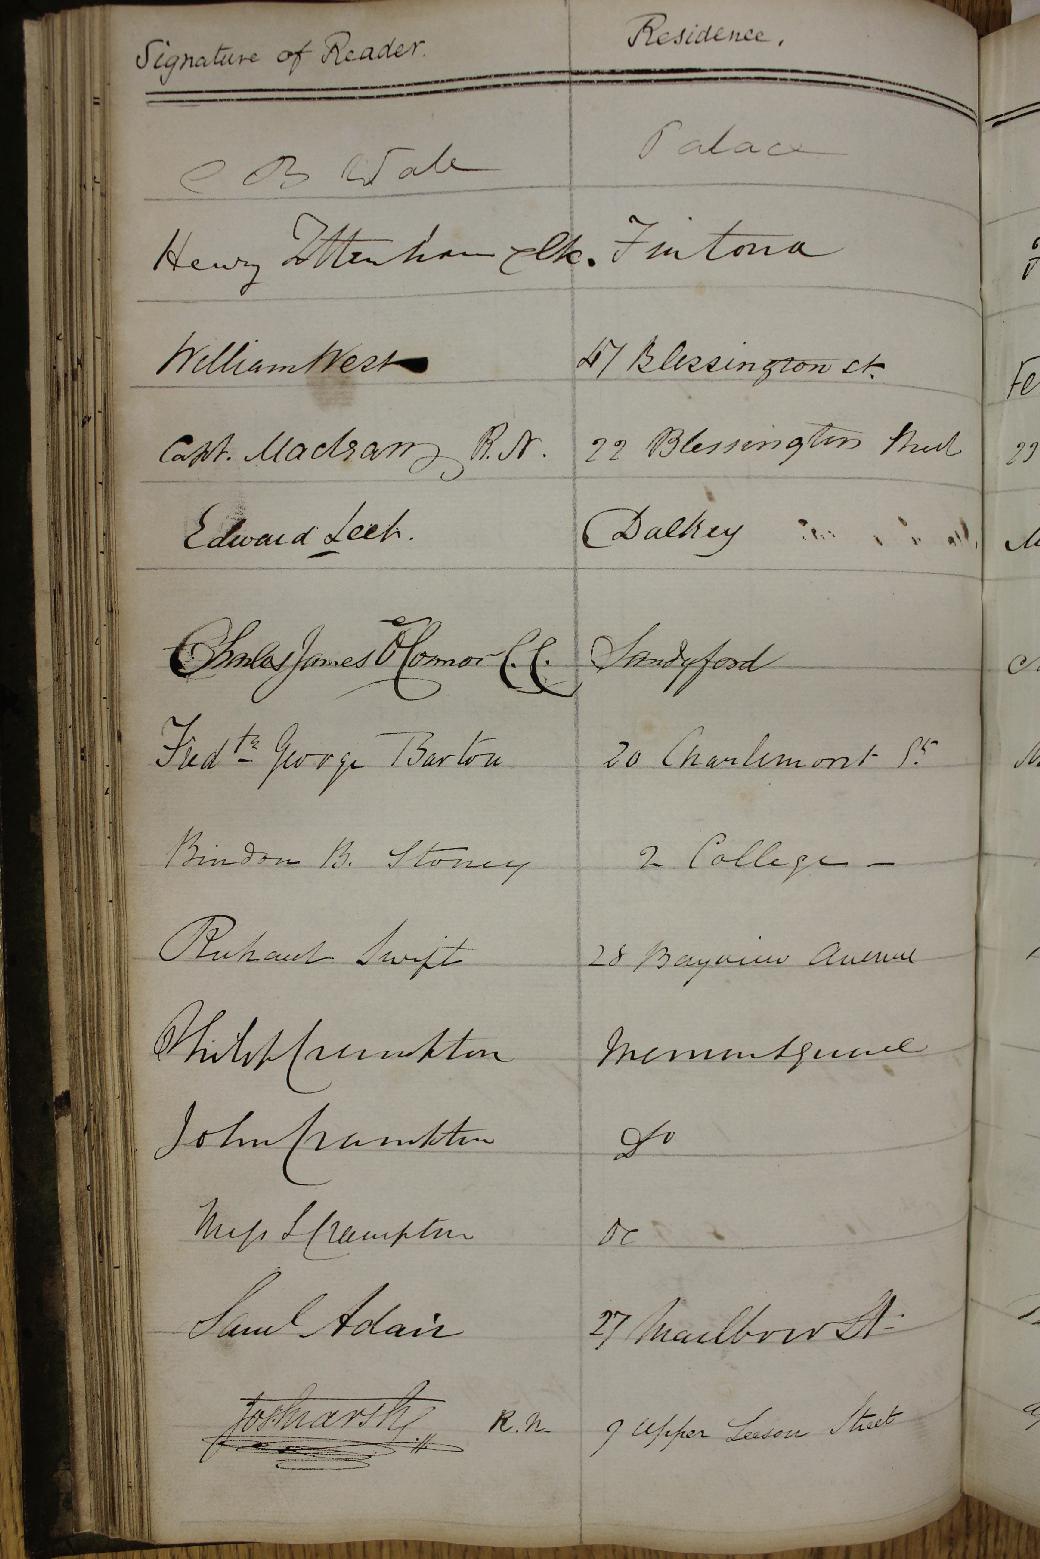 Signature of Reader. Residence.
C B Wale Palace
Henry Tottenham Clk. Fintona
William West 47 Blessington st.
Capt. R.N. 22 Blessington Street
Edward Leet. Dalkey
Charles James O'Connor C.C. Sandyford
Fredk George Barton 20 Charlemont St
Bindon B. Stoney 2 College —
Richard Swift 28 Bayview Avenue
Philip Crampton Merrion Square
John Crampton Do
Miss S Crampton Do
Saml Adair 27 Marlboro St.
R.N. 9 Upper Leeson Street